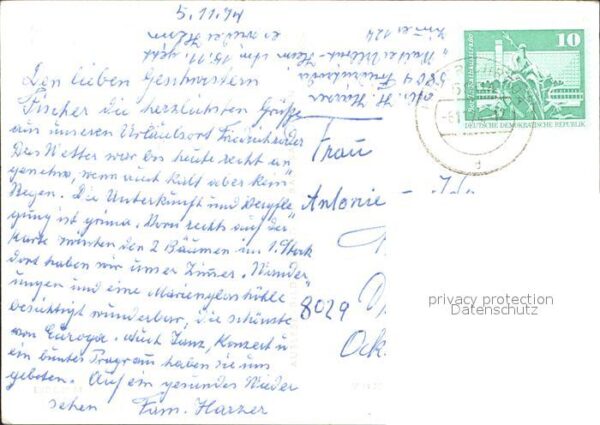 5.11.74
Den lieben Geschwistern
Fischer die herzlichsten Grüße
aus unseren Urlaubsort Friedrichroda
Das Wetter war bis heute recht an
genehm, wenn auch kalt aber kein
Regen. Die Unterkunft und Verpfle
gung ist prima. Vorn rechts auf der
Karte zwischen den 2 Bäumen im 1. Stock
dort haben wir unser Zimmer. Wander
ungen und eine Marienglashöhle
besichtigt wunderbar, die schönste
von Europa. Auch Tanz, Konzert u
ein buntes Programm haben sie uns
geboten. Auf ein gesundes Wieder
sehen Fam. Harzer
5804 Friedrichroda
Zimmer 124
Frau
Antonie
8029
10
DEUTSCHE DEMOKRATISCHE REPUBLIK
privacy protection
Datenschutz